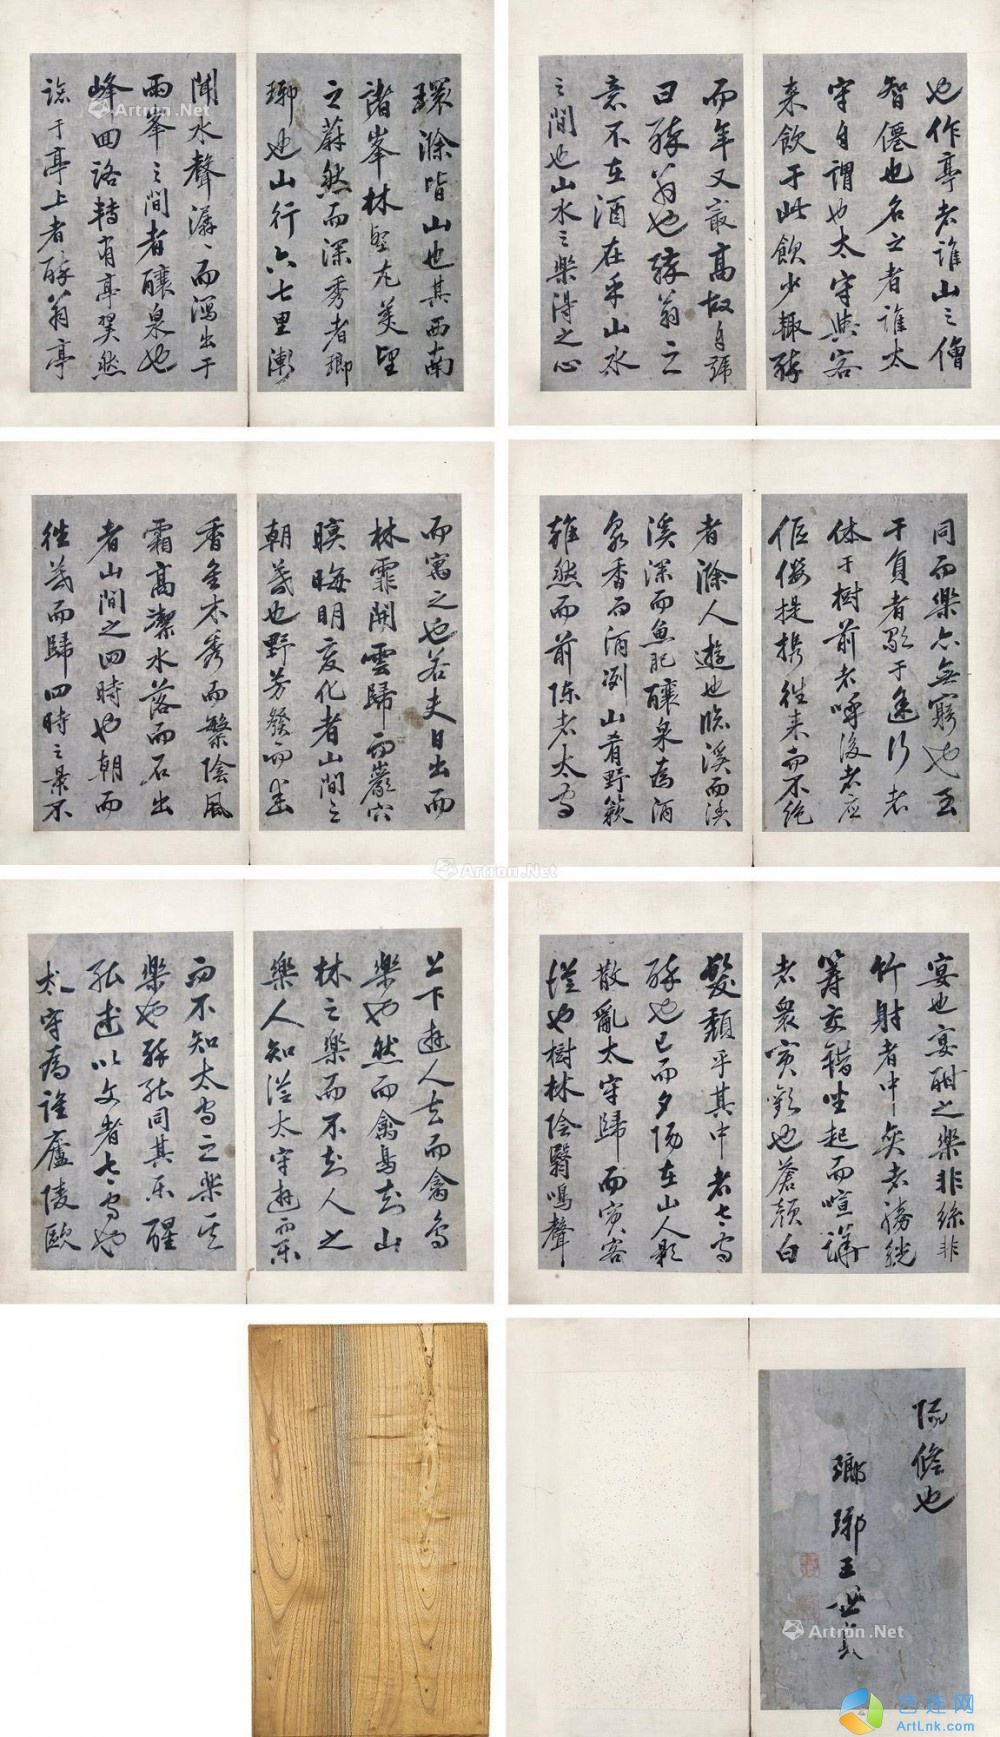 環滁皆山也其西南
諸峯林壑尤美望
之蔚然而深秀者瑯
琊也山行六七里漸
聞水聲潺〻而瀉出于
兩峯之間者釀泉也
峰回路轉有亭翼然
臨于亭上者醉翁亭
也作亭者誰山之僧
智僊也名之者誰太
守自謂也太守與客
来飲于此飲少輒醉
而年又最高故自號
曰醉翁也醉翁之
意不在酒在乎山水
之間也山水之樂得之心
而寓之也若夫日出而
林霏開雲歸而巖穴
暝晦明变化者山間之
朝暮也野芳發而幽
香佳木秀而繁陰風
霜高潔水落而石出
者山間之四時也朝而
往暮而歸四時之景不
同而樂亦無窮也至
于負者歌于途行者
休于樹前者呼後者应
伛偻提携往来而不绝
者滁人遊也临溪而渔
溪深而魚肥釀泉為酒
泉香而酒洌山肴野蔌
雜然而前陈者太守
宴也宴酣之樂非絲非
竹射者中奕者勝觥
籌交錯坐起而喧譁
者衆賓歡也蒼顏白
髮頹乎其中者太守
醉也已而夕陽在山人影
散亂太守歸而賓客
從也樹林陰翳鳴聲
上下遊人去而禽鳥
樂也然而禽鳥知山
林之樂而不知人之
樂人知從太守遊而樂
而不知太守之樂其
樂也醉能同其乐醒
能述以文者太守也
太守為誰廬陵歐
陽修也
瑯琊王世貞
Artron.Net
Artron.Net
Artron.Net
Artron.Net
Artron.Net
艺连网
ArtLnk.com